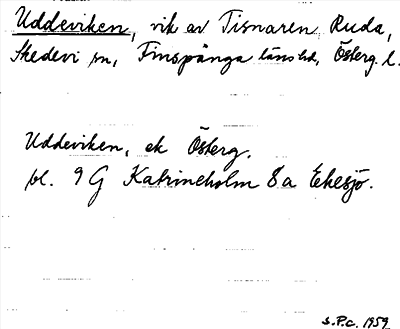 Uddeviken, vik av Tisnaren Ruda,
Skedevi sn, Finspånga länshd, Österg. l.
Uddeviken, ek Österg.
bl. 9 G Katrineholm 8 a Ekesjö.
S.P.c. 1959